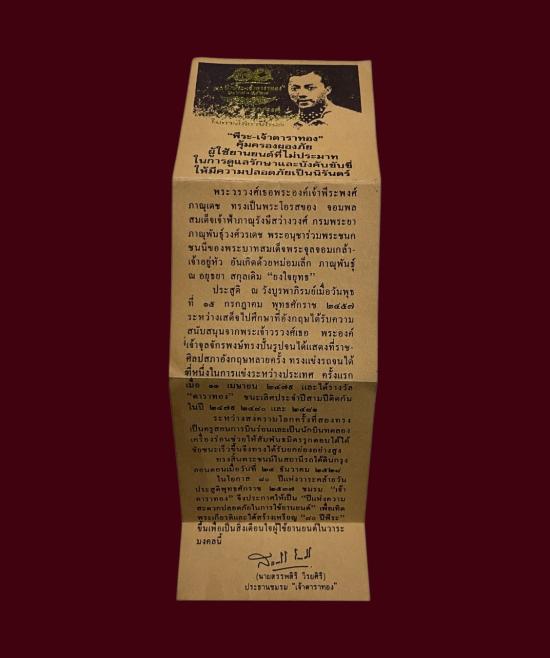 "พีระ-เจ้าดาราทอง"
คุ้มครองผองภัย
ผู้ใช้ยานยนต์ที่ไม่ประมาท
ในการดูแลรักษาและบังคับขับขี่
ให้มีความปลอดภัยเป็นนิรันดร์
พระวรวงศ์เธอพระองค์เจ้าพีระพงศ์
ภาณุเดช ทรงเป็นพระโอรสของ จอมพล
สมเด็จเจ้าฟ้าภาณุรังษีสว่างวงศ์ กรมพระยา
ภาณุพันธุ์วงศ์วรเดช พระอนุชาร่วมพระชนก
ชนนีของพระบาทสมเด็จพระจุลจอมเกล้า-
เจ้าอยู่หัว อันเกิดด้วยหม่อมเล็ก ภาณุพันธุ์
ณ อยุธยา สกุลเดิม "ยงใจยุทธ"
ประสูติ ณ วังบูรพาภิรมย์เมื่อวันพุธ
ที่ ๑๕ กรกฎาคม พุทธศักราช ๒๔๕๗
ระหว่างเสด็จไปศึกษาที่อังกฤษได้รับความ
สนับสนุนจากพระเจ้าวรวงศ์เธอ พระองค์
เจ้าจุลจักรพงษ์ทรงปั้นรูปจนได้แสดงที่ราช-
ศิลปสภาอังกฤษหลายครั้ง ทรงแข่งรถจนได้
ที่หนึ่งในการแข่งระหว่างประเทศ ครั้งแรก
เมื่อ ๑๑ เมษายน ๒๔๗๙ และได้รางวัล
"ดาราทอง" ชนะเลิศประจำปีสามปีติดกัน
ในปี ๒๔๗๙ ๒๔๘๐ และ ๒๔๘๑
ระหว่างสงครามโลกครั้งที่สองทรง
เป็นครูสอนการบินร่อนและเป็นนักบินทดลอง
เครื่องร่อนช่วยให้สัมพันธมิตรรุกตอบโต้ได้
ชัยชนะเร็วขึ้นจึงทรงได้รับยกย่องอย่างสูง
ทรงสิ้นพระชนม์ในสถานีรถใต้ดินกรุง
ลอนดอนเมื่อวันที่ ๒๔ ธันวาคม ๒๕๒๘
ในโอกาส ๘๐ ปีแห่งวาระคล้ายวัน
ประสูติพุทธศักราช ๒๕๓๗ ชมรม "เจ้า
ดาราทอง" จึงประกาศให้เป็น "ปีแห่งความ
สะดวกปลอดภัยในการใช้ยานยนต์" เพื่อเทิด
พระเกียรติและได้สร้างเหรียญ "๘๐ ปีพีระ"
ขึ้นเพื่อเป็นสิ่งเตือนใจผู้ใช้ยานยนต์ในวาระ
มงคลนี้
(นายสรรพสิริ วิรยศิริ)
ประธานชมรม "เจ้าดาราทอง"